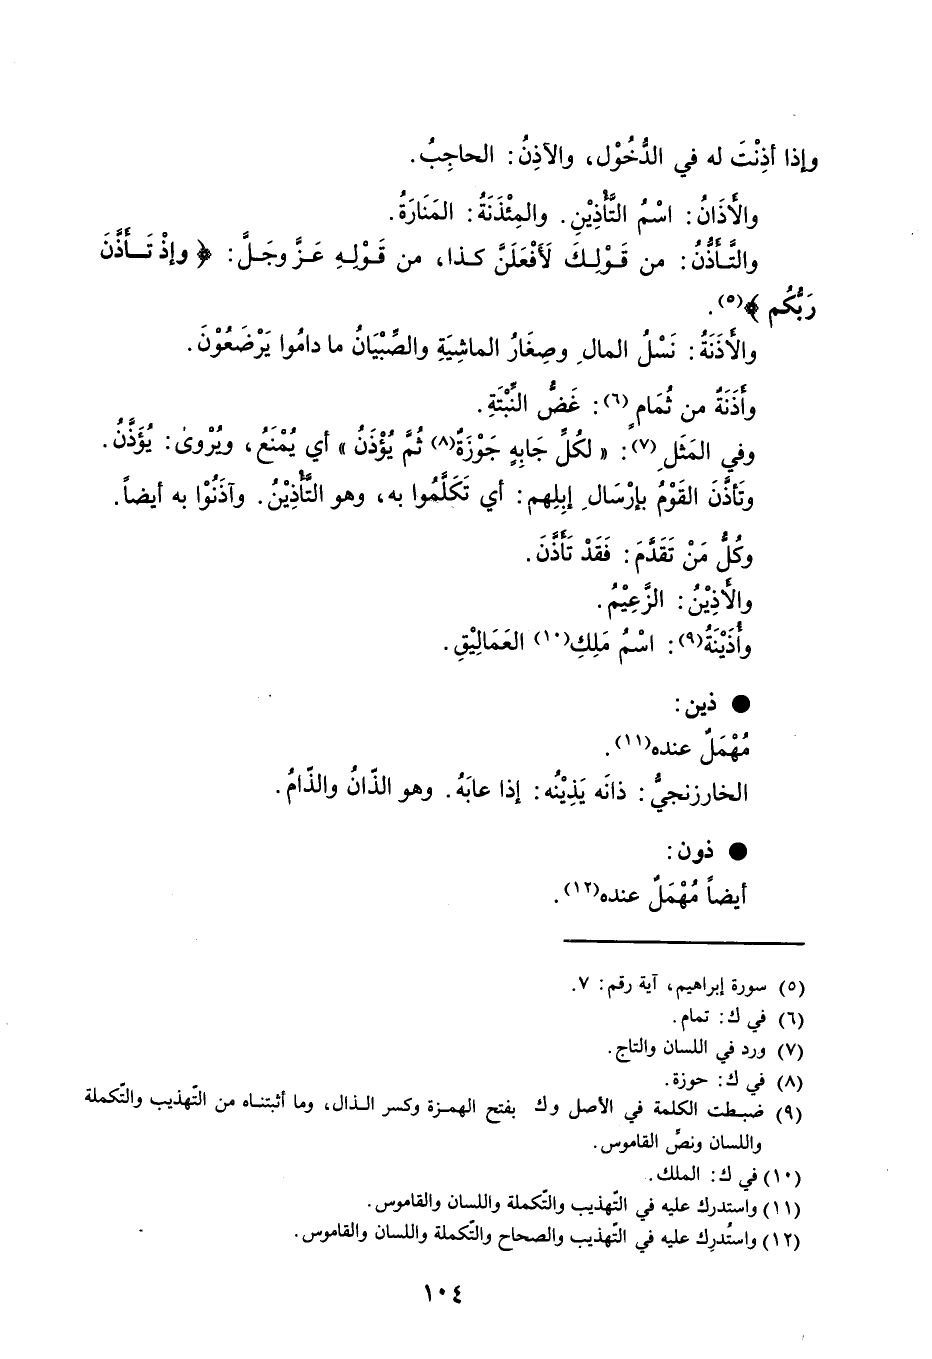 وإذا أذِنْتَ له في الدُّخُوْل، والآذِنُ: الحاجِبُ.
والأَذَانُ: اسْمُ التَّأْذِيْنِ. والمِئْذَنَةُ: المَنَارَةُ.
والتَّأَذُّنُ: من قَوْلِكَ لَأَفْعَلَنَّ كذا، من قَوْلِهِ عَزَّ وجَلَّ: ﴿ وإذْ تَأَذَّنَ
رَبُّكُم ﴾(٥).
والأَذَنَةُ: نَسْلُ المالِ وصِغَارُ الماشِيَةِ والصِّبْيَانُ ما دامُوا يَرْضَعُوْنَ.
وأَذَنَةٌ من ثُمَامٍ(٦): غَضُّ النِّبْتَةِ.
وفي المَثَلِ(٧): « لكُلِّ جَابِهٍ جَوْزَةٌ(٨) ثُمَّ يُؤْذَنُ » أي يُمْنَعُ، ويُرْوىٰ: يُؤَذَّنُ.
وتَأذَّنَ القَوْمُ بإرْسَالِ إبِلِهم: أي تَكَلَّمُوا به، وهو التَّأْذِيْنُ. وآذَنُوْا به أيضاً.
وكُلُّ مَنْ تَقَدَّمَ: فَقَدْ تَأَذَّنَ.
والأَذِيْنُ: الزَّعِيْمُ.
وأُذَيْنَةُ(٩): اسْمُ مَلِكِ(١٠) العَمَالِيْقِ.
● ذين:
مُهْمَلٌ عنده(١١).
الخارزنجيُّ: ذانَه يَذِيْنُه: إذا عابَهُ. وهو الذّانُ والذّامُ.
● ذون:
أيضاً مُهْمَلٌ عنده(١٢).
(٥) سورة إبراهيم، آية رقم: ٧.
(٦) في ك: تمام.
(٧) ورد في اللسان والتاج.
(٨) في ك: حوزة.
(٩) ضبطت الكلمة في الأصل وك بفتح الهمزة وكسر الذال، وما أثبتناه من التّهذيب والتّكملة
واللسان ونصِّ القاموس.
(١٠) في ك: الملك.
(١١) واستدرك عليه في التّهذيب والتّكملة واللسان والقاموس.
(١٢) واستُدرِك عليه في التّهذيب والصحاح والتّكملة واللسان والقاموس.
١٠٤